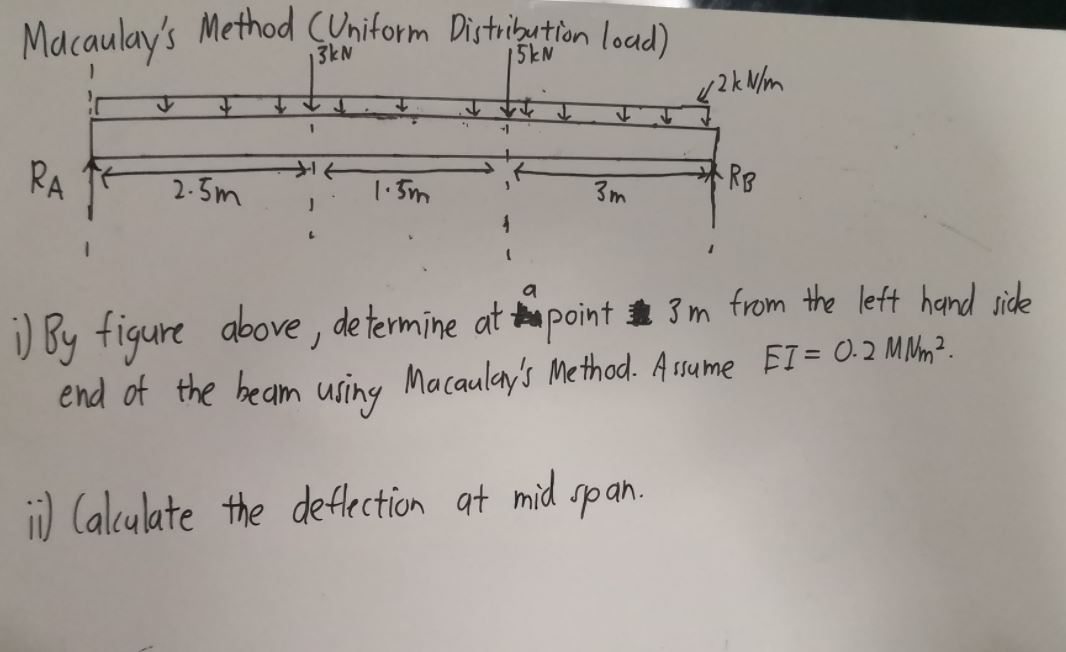 Macaulay's Method (Uniform Distribution load)
3kN 5kN
2kN/m
RA 2.5m 1.5m 3m RB
i) By figure above, determine at a point 3m from the left hand side
end of the beam using Macaulay's Method. Assume EI = 0.2 MNm².
ii) Calculate the deflection at mid span.